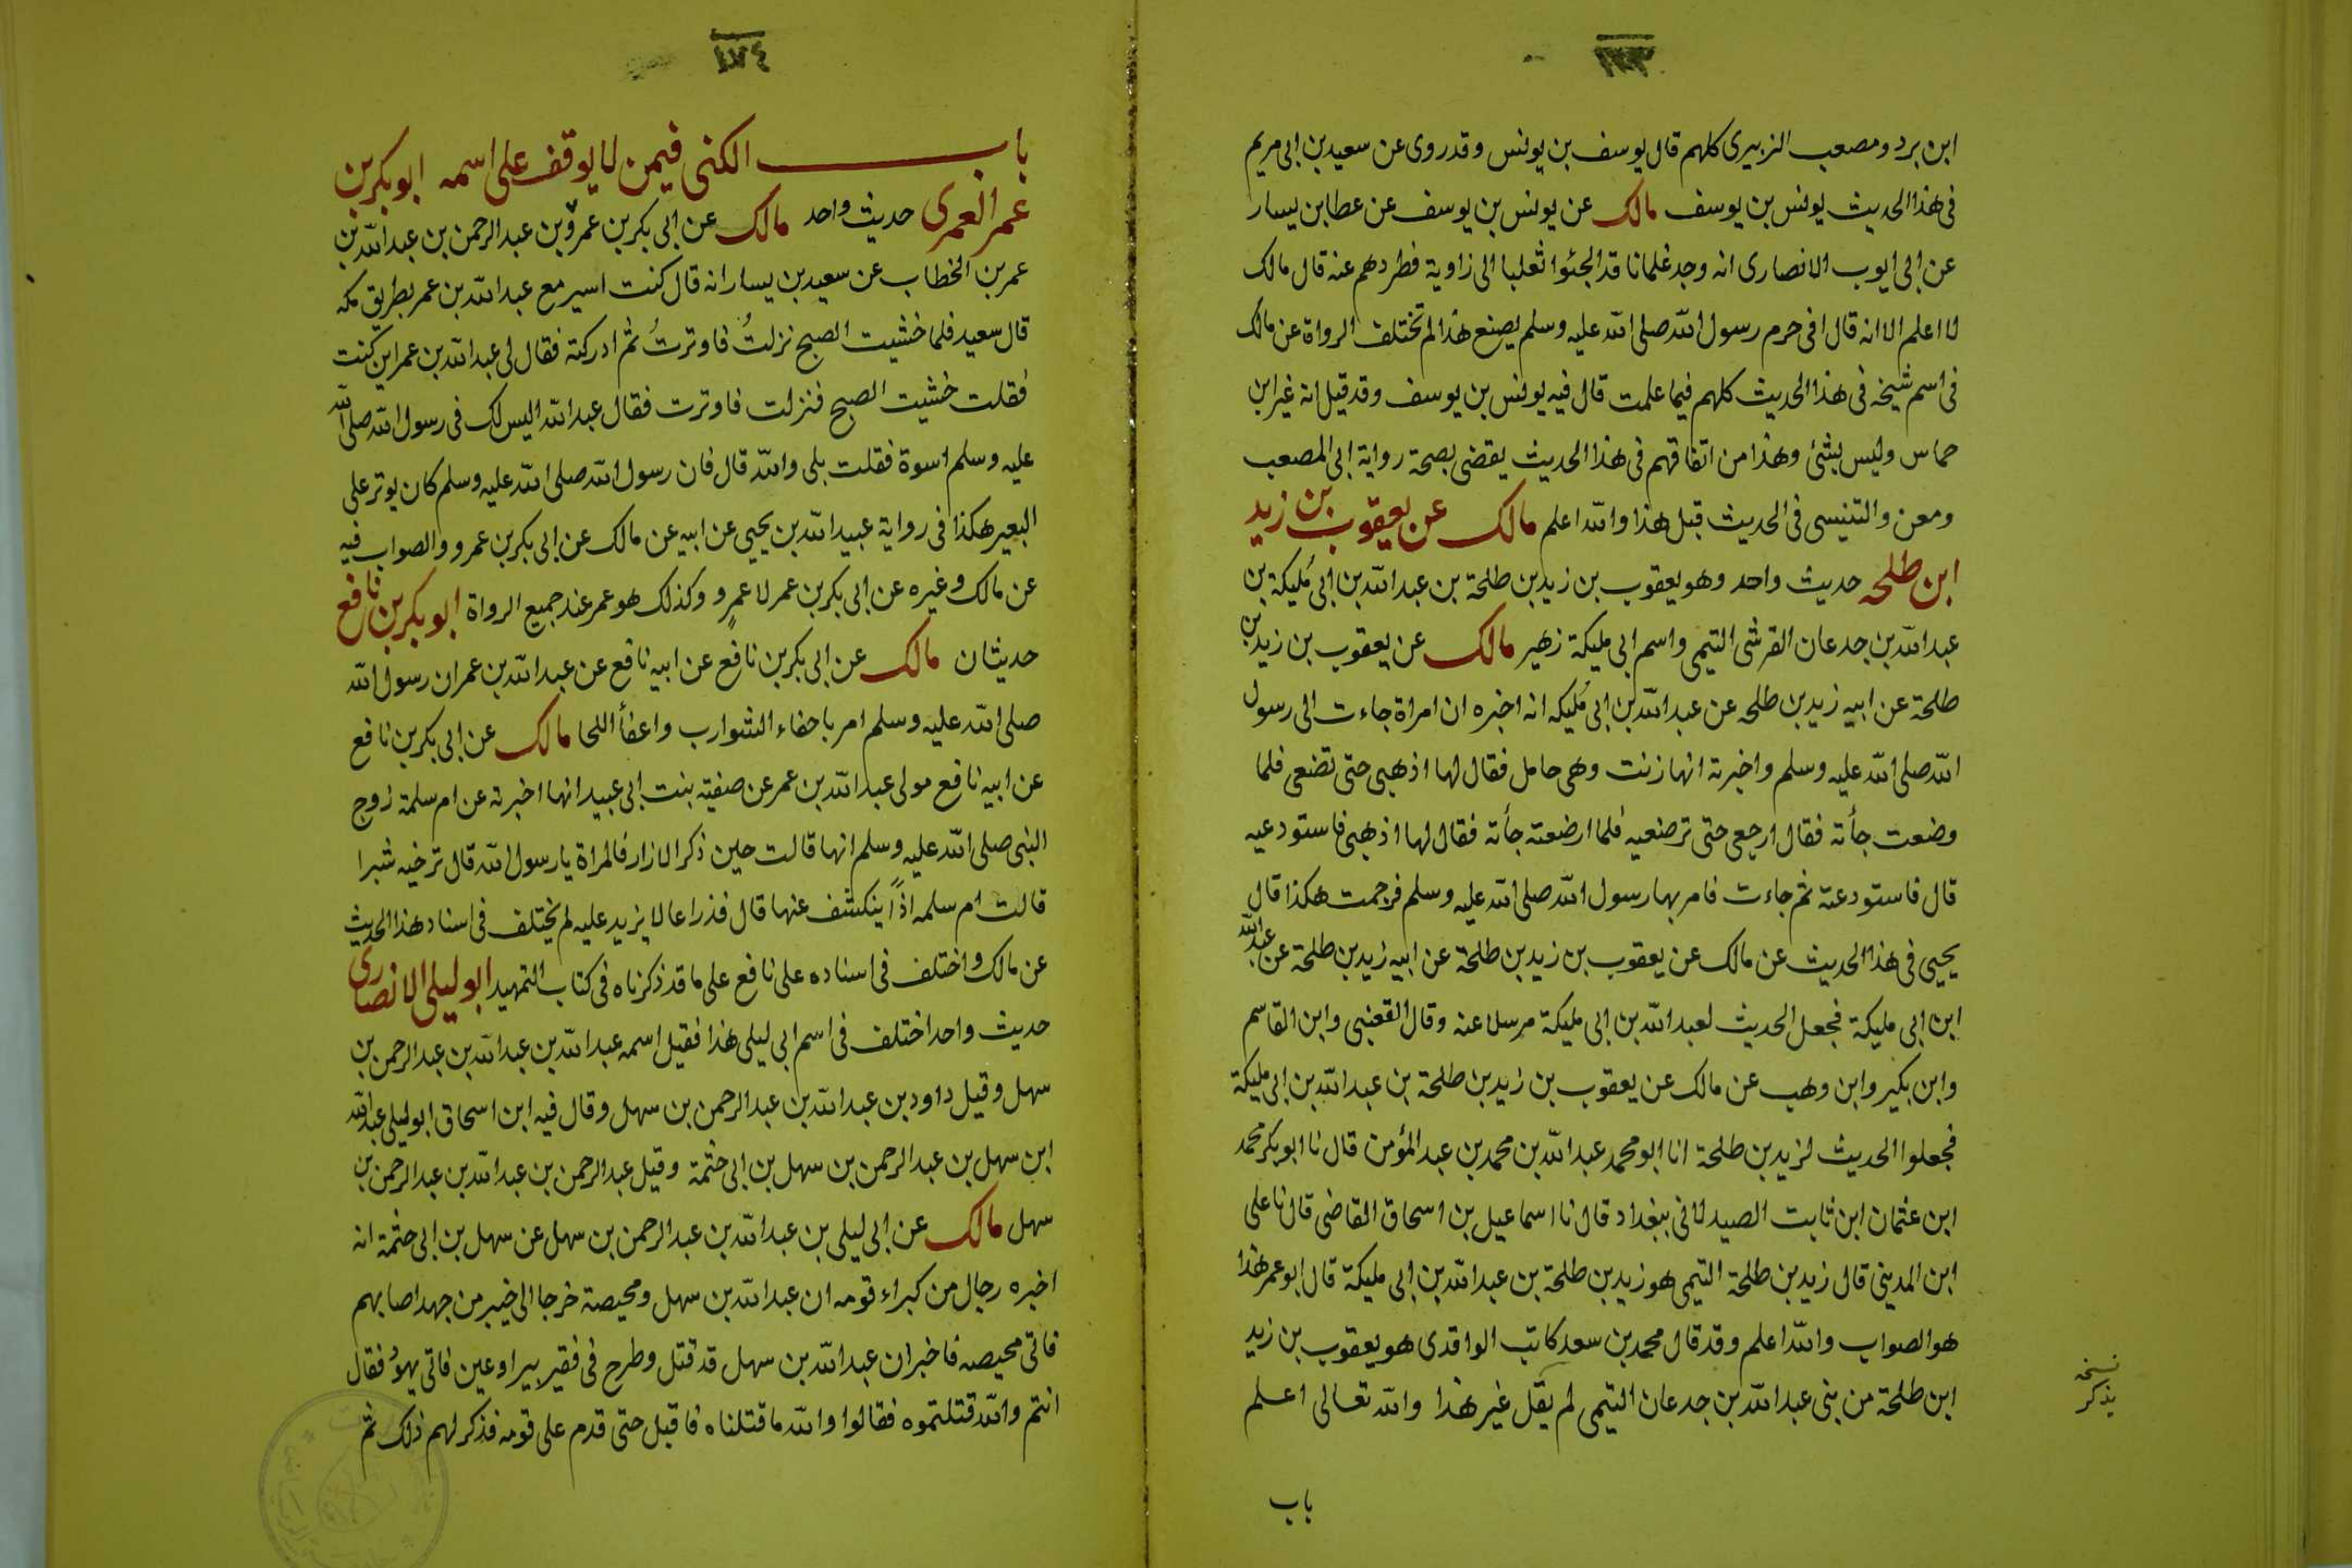 ابن برد ومصعب الزبيرى كلهم قال يوسف بن يونس وقد روى عن سعيد بن ابى مريم
فى هذا الحديث يونس بن يوسف مالك عن يونس بن يوسف عن عطا بن يسار
عن ابى ايوب الانصارى انه وجد غلمانا قد الجئوا ثعلبا الى زاوية فطردهم عنه قال مالك
لا اعلم الا انه قال افى حرم رسول الله صلى الله عليه وسلم يصنع هذا لم تختلف الرواة عن مالك
فى اسم شيخه فى هذا الحديث كلهم فيما علمت قال فيه يونس بن يوسف وقد قيل انه غير ابن
حماس وليس بشئ وهذا من اتفاقهم فى هذا الحديث يقضى بصحة رواية ابى المصعب
ومعن والتنيسى فى الحديث قبل هذا والله اعلم مالك عن يعقوب بن زيد
ابن طلحه حديث واحد وهو يعقوب بن زيد بن طلحة بن عبد الله بن ابى مُليكة بن
عبد الله بن جدعان القرشى التيمى واسم ابى مليكة زهير مالك عن يعقوب بن زيد بن
طلحة عن ابيه زيد بن طلحه عن عبد الله بن ابى مُليكه انه اخبره ان امراة جاءت الى رسول
الله صلى الله عليه وسلم واخبرته انها زنت وهى حامل فقال لها اذهبى حتى تضعى فلما
وضعت جأته فقال ارجعى حتى ترضعيه فلما ارضعته جأته فقال لها اذهبى فاستودعيه
قال فاستودعته ثم جاءت فامر بها رسول الله صلى الله عليه وسلم فرجمت هكذا قال
يحيى فى هذا الحديث عن مالك عن يعقوب بن زيد بن طلحة عن ابيه زيد بن طلحة عن عبد الله
ابن ابى مليكة فجعل الحديث لعبد الله بن ابى مليكة مرسلا عنه وقال القعنبى وابن القاسم
وابن بكير وابن وهب عن مالك عن يعقوب بن زيد بن طلحة بن عبد الله بن ابى مليكة
فجعلوا الحديث لزيد بن طلحة انا ابو محمد عبد الله بن محمد بن عبد المؤمن قال نا ابو بكر محمد
ابن عثمان ابن ثابت الصيدلانى ببغداد قال نا اسماعيل بن اسحاق القاضى قال نا على
ابن المدينى قال زيد بن طلحة التيمى هو زيد بن طلحة بن عبد الله بن ابى مليكة قال ابو عمر هذا
هو الصواب والله اعلم وقد قال محمد بن سعد كاتب الواقدى هو يعقوب بن زيد
ابن طلحة من بنى عبد الله بن جدعان التيمى لم يقل غير هذا والله تعالى اعلم
نسخه
يذكر
باب
٤٧٤
باب الكنى فيمن لا يوقف على اسمه ابو بكر بن
عمر العمرى حديث واحد مالك عن ابى بكر بن عمرو بن عبد الرحمن بن عبد الله بن
عمر بن الخطاب عن سعيد بن يسار انه قال كنت اسير مع عبد الله بن عمر بطريق مكه
قال سعيد فلما خشيت الصبح نزلتُ فاوترتُ ثم ادركته فقال لى عبد الله بن عمر اين كنت
فقلت خشيت الصبح فنزلت فاوترت فقال عبد الله اليس لك فى رسول الله صلى الله
عليه وسلم اسوة فقلت بلى والله قال فان رسول الله صلى الله عليه وسلم كان يوتر على
البعير هكذا فى رواية عبيد الله بن يحيى عن ابيه عن مالك عن ابى بكر بن عمرو والصواب فيه
عن مالك وغيره عن ابى بكر بن عمر لا عمرٍو وكذلك هو عمر عند جميع الرواة ابو بكر بن نافع
حديثان مالك عن ابى بكر بن نافع عن ابيه نافع عن عبد الله بن عمر ان رسول الله
صلى الله عليه وسلم امر باحفاء الشوارب واعفأ اللحا مالك عن ابى بكر بن نافع
عن ابيه نافع مولى عبد الله بن عمر عن صفيّة بنت ابى عبيد انها اخبرته عن ام سلمة زوج
النبى صلى الله عليه وسلم انها قالت حين ذكر الازار فالمراة يا رسول الله قال ترخيه شبرا
قالت ام سلمه اذاً ينكشف عنها قال فذراعا لا يزيد عليه لم يختلف فى اسناد هذا الحديث
عن مالك واختلف فى اسناده على نافع على ما قد ذكرناه فى كتاب التمهيد ابو ليلى الانصارى
حديث واحد اختلف فى اسم ابى ليلى هذا فقيل اسمه عبد الله بن عبد الله بن عبد الرحمن بن
سهل وقيل داود بن عبد الله بن عبد الرحمن بن سهل وقال فيه ابن اسحاق ابو ليلى عبد الله
ابن سهل بن عبد الرحمن بن سهل بن ابى حثمة وقيل عبد الرحمن بن عبد الله بن عبد الرحمن بن
سهل مالك عن ابى ليلى بن عبد الله بن عبد الرحمن بن سهل عن سهل بن ابى حثمة انه
اخبره رجال من كبراء قومه ان عبد الله بن سهل ومحيصة خرجا الى خيبر من جهد اصابهم
فاتى محيصه فاخبر ان عبد الله بن سهل قد قتل وطرح فى فقير بير او عين فاتى يهود فقال
انتم والله قتلتموه فقالوا والله ما قتلناه فاقبل حتى قدم على قومه فذكر لهم ذلك ثم